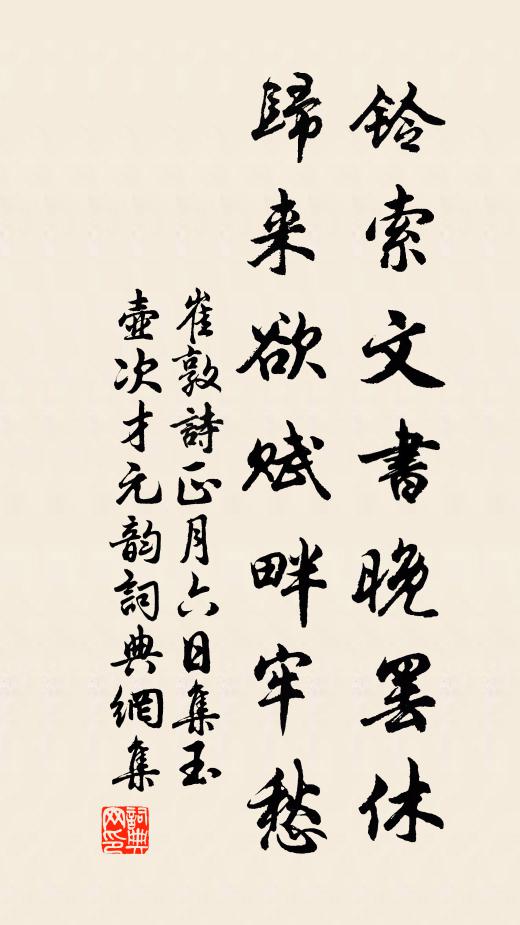 鈴索文書晚罢休
歸来欲赋畔牢愁
崔敦詩正月六日集玉
壺次才元韵詞典網集
詞典网印